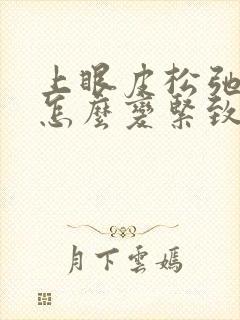 上眼皮松弛
怎麼變緊致
月下雲嫣